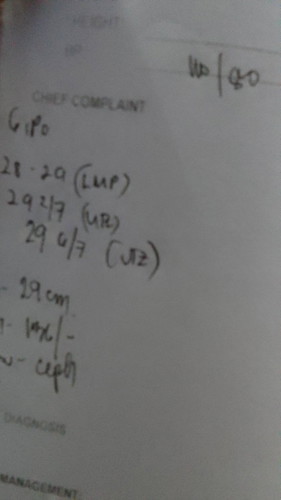 HEIGHT
BP
110/80
CHIEF COMPLAINT
G1P0
28-29 (LMP)
29 2/7 (UR)
29 6/7 (UTZ)
- 29 cm
- ceph
DIAGNOSIS
MANAGEMENT: